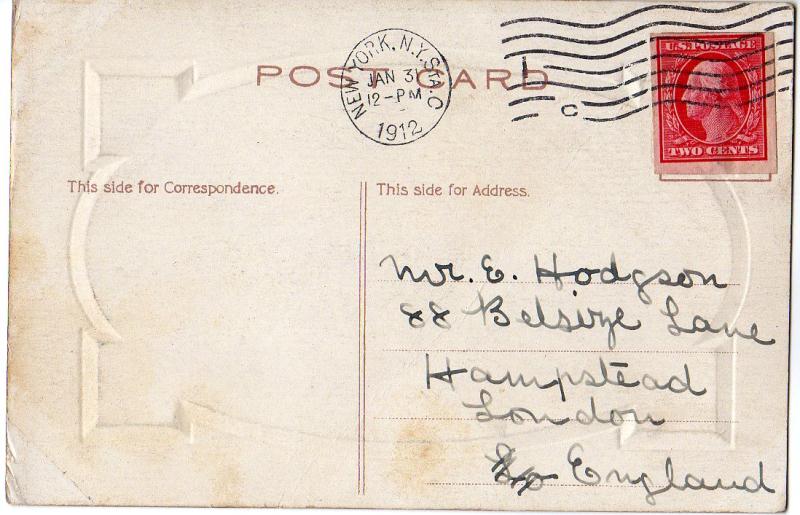 POST CARD
NEW YORK, N.Y. STA. C
JAN 31
12-PM
1912
C
U.S. POSTAGE
TWO CENTS
This side for Correspondence.
This side for Address.
Mr. E. Hodgson
88 Belsize Lane
Hampstead
London
England